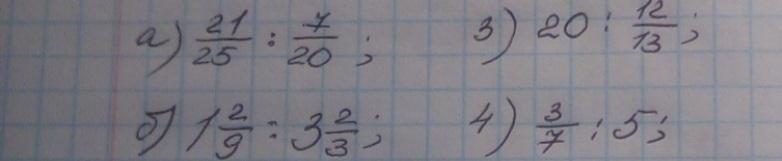 а) 21/25 : 7/20 ; 3) 20 : 12/13 ;
б) 1 2/9 : 3 2/3 ; 4) 3/7 : 5 ;